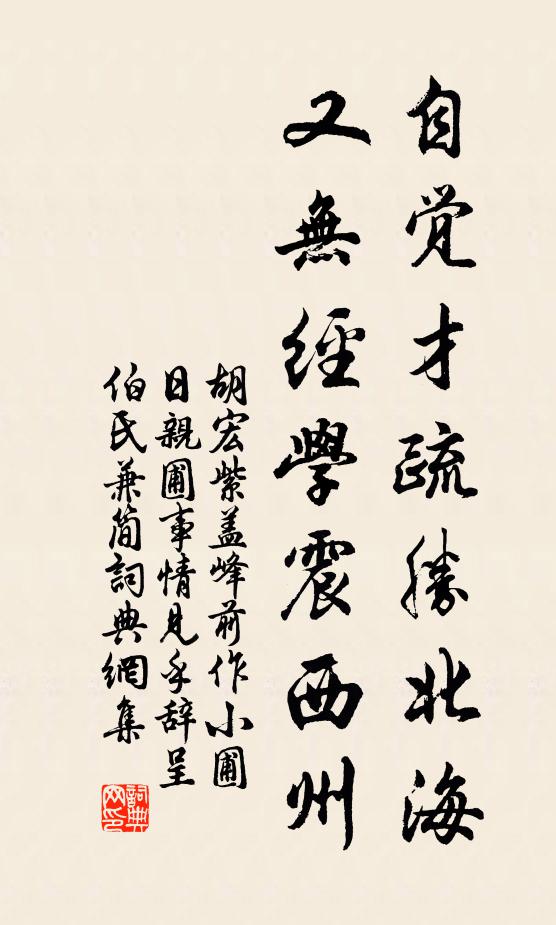 自觉才疏勝北海
又無經學震西州
胡宏紫盖峰前作小圃
日親圃事情見乎辞呈
伯氏兼简詞典網集
詞典网印